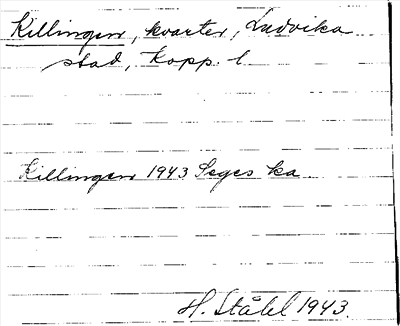 Killingen, kvarter, Ludvika
stad, Kopp. l.
Killingen 1943 Seges ka
H. Ståhl 1943.